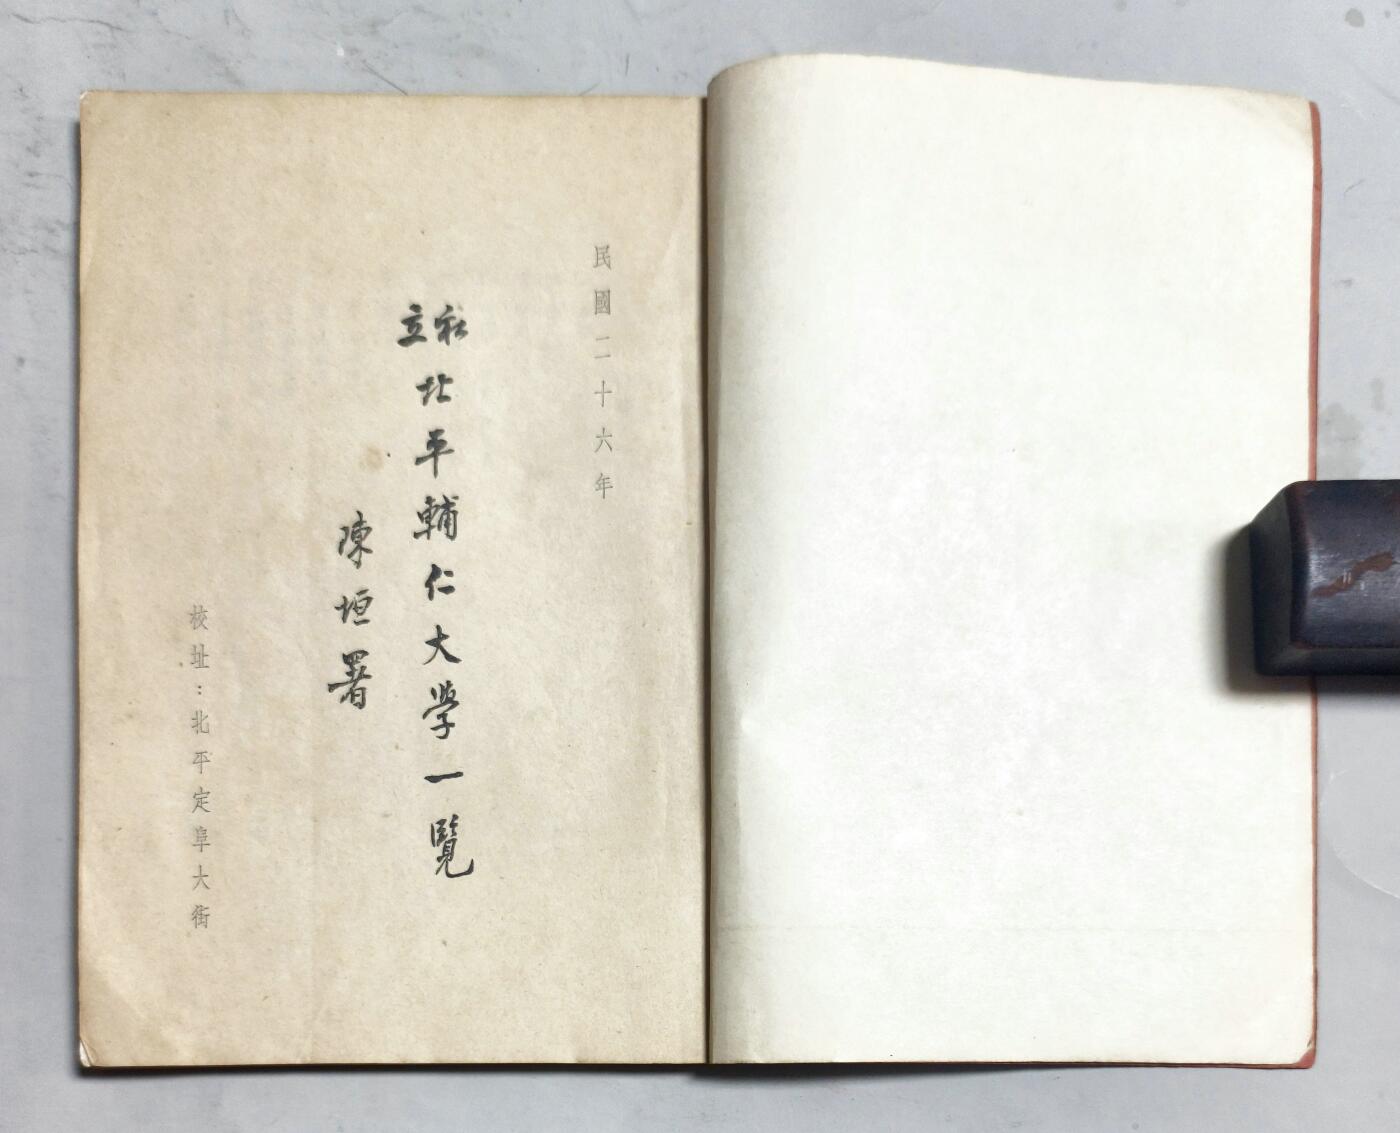 民國二十六年
私立北平輔仁大學一覽
陳垣署
校址：北平定阜大街